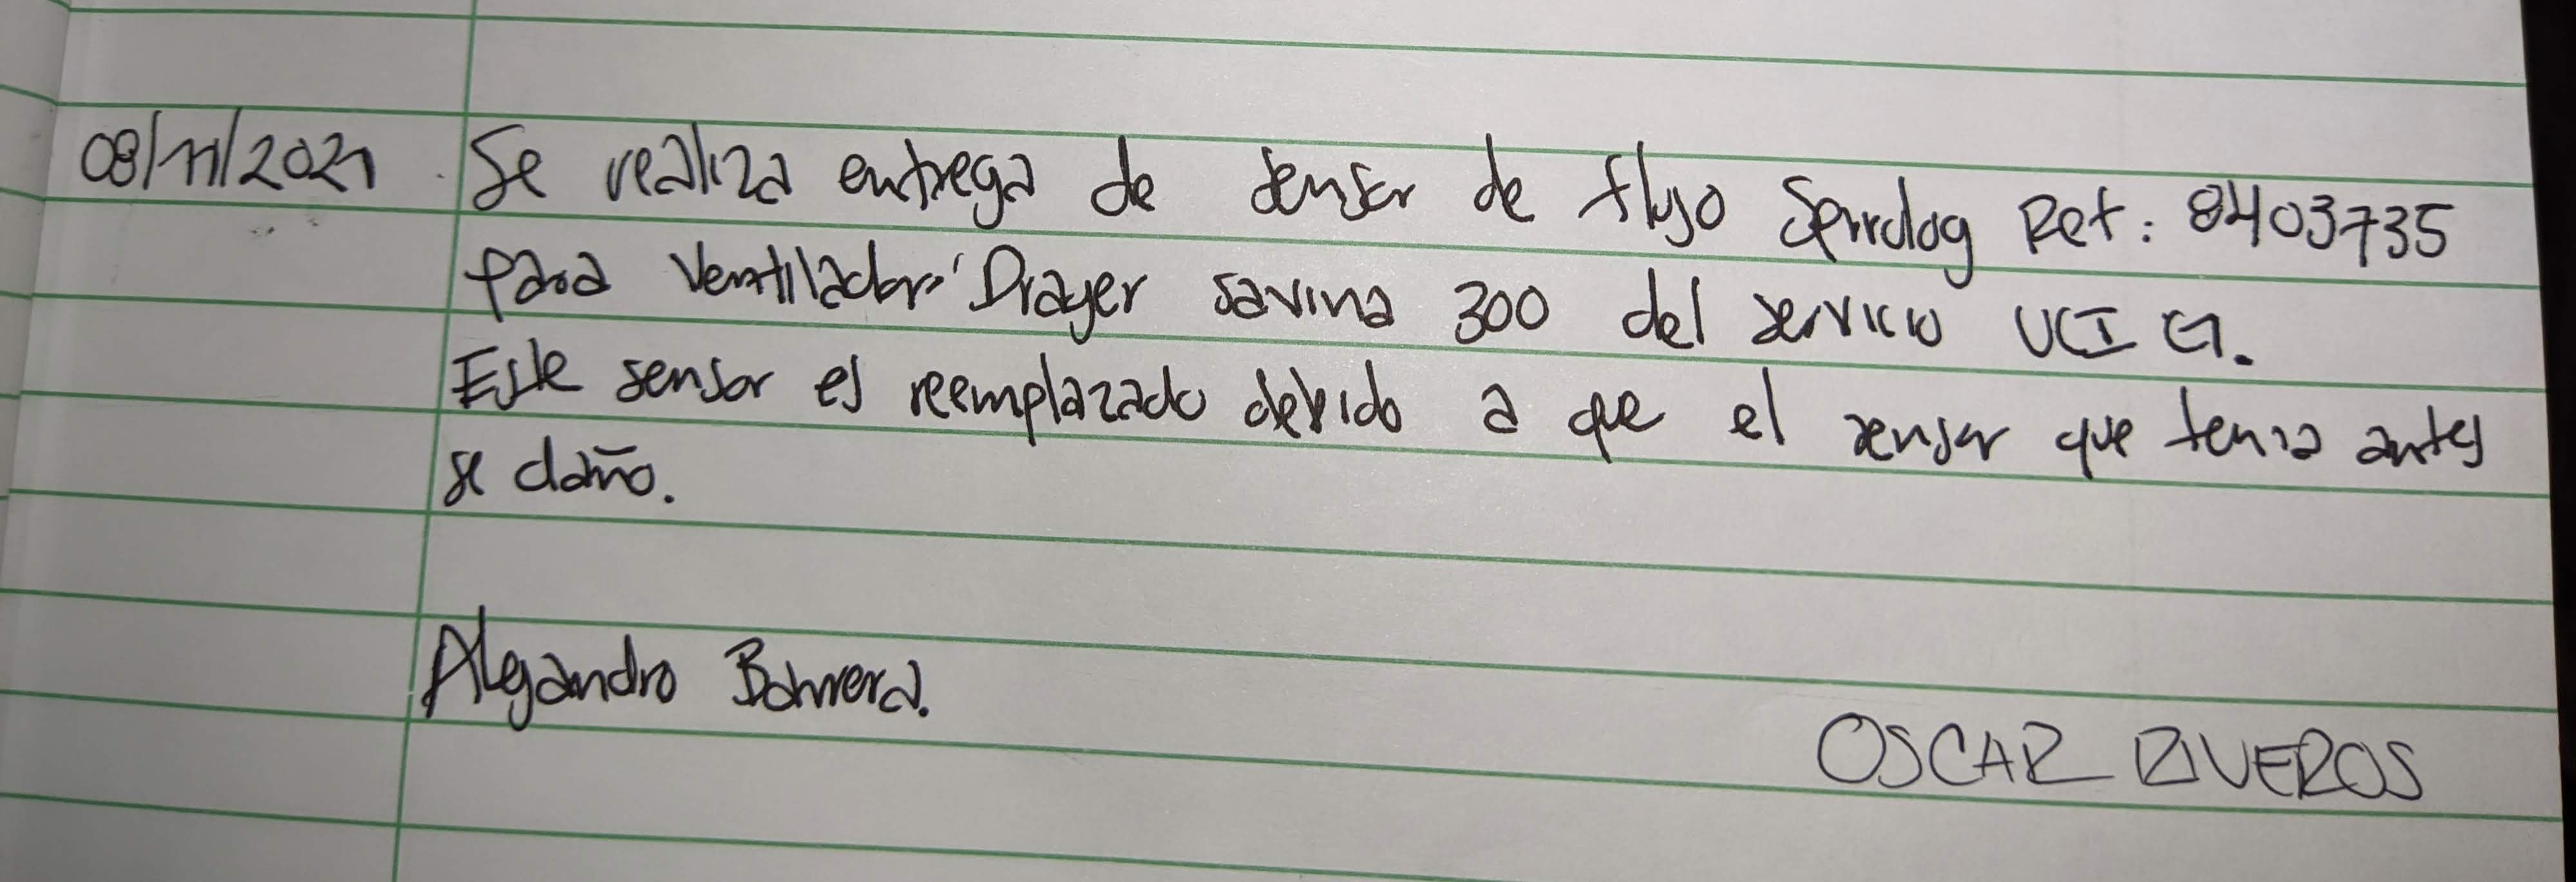 08/11/2021 Se realiza entrega de sensor de flujo Spirolog Ref: 8403735
para Ventilador Drager savina 300 del servicio UCI G.
Este sensor es reemplazado debido a que el sensor que tenia antes
se daño.
Alejandro Barrera.
OSCAR RIVEROS